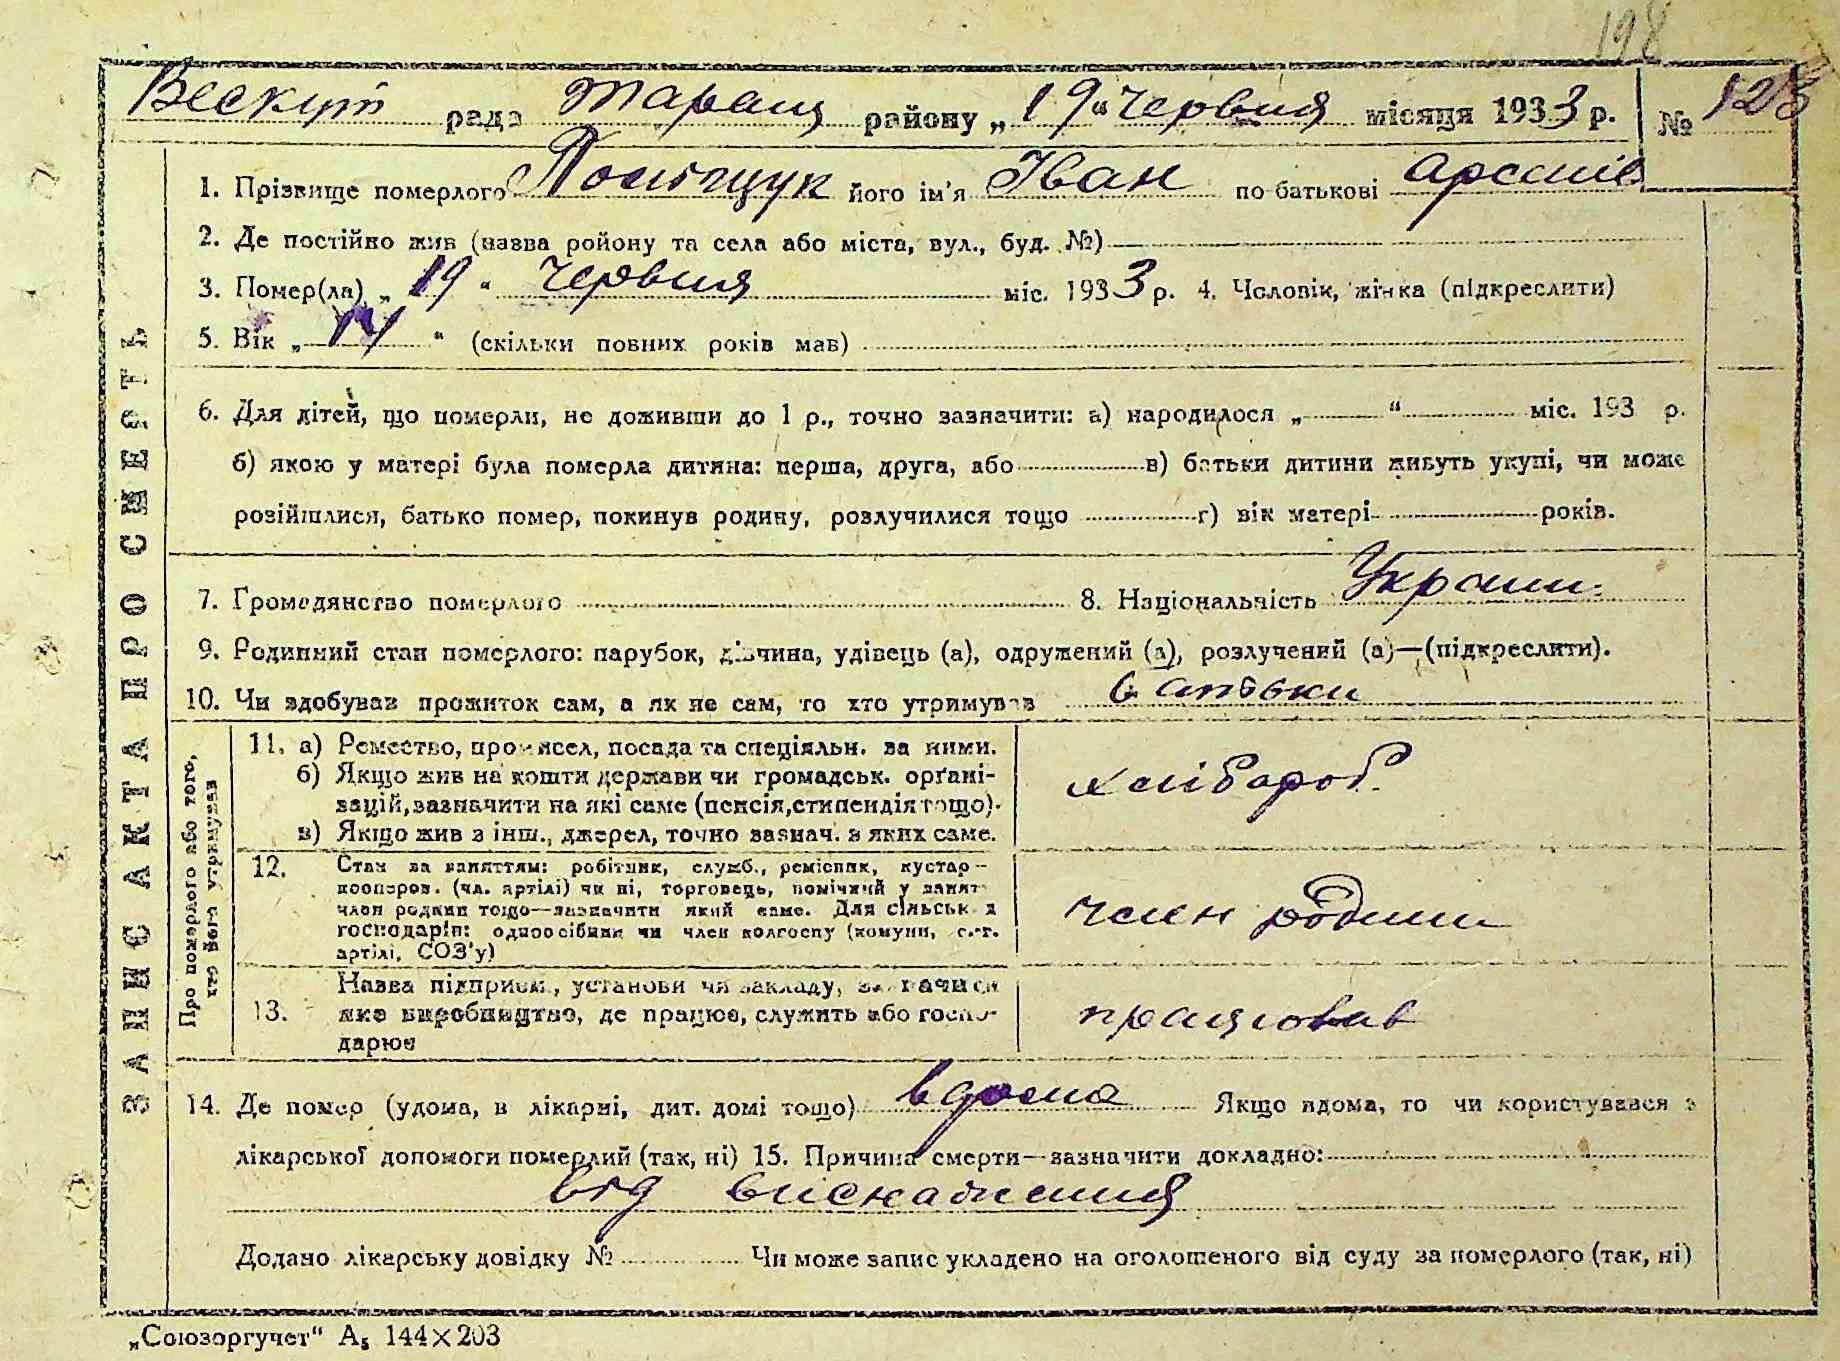 198
Вескут рада Таращ району „19“ червня місяця 1933 р. № 128
ЗАПИС АКТА ПРО СМЕРТЬ
1. Прізвище померлого Поліщук його ім'я Іван по батькові Арсенів
2. Де постійно жив (назва ройону та села або міста, вул., буд. №)
3. Помер(ла) „19“ червня міс. 1933 р. 4. Чоловік, жінка (підкреслити)
5. Вік „14“ (скільки повних років мав)
6. Для дітей, що померли, не доживши до 1 р., точно зазначити: а) народилося „ “ міс. 193 р.
б) якою у матері була померла дитина: перша, друга, або в) батьки дитини живуть укупі, чи може
розійшлися, батько помер, покинув родину, розлучилися тощо г) вік матері років.
7. Громадянство померлого 8. Національність Україн.
9. Родинний стан померлого: парубок, дівчина, удівець (а), одружений (а), розлучений (а)—(підкреслити).
10. Чи здобував прожиток сам, а як не сам, то хто утримував батьки
Про померлого або того, хто його утримував
11. а) Ремество, промисел, посада та спеціяльн. за ними.
б) Якщо жив на кошти держави чи громадськ. орґані-
зацій, зазначити на які саме (пенсія, стипендія тощо).
в) Якщо жив з інш., джерел, точно зазнач. з яких саме.
хлібороб.
12. Стан за заняттям: робітник, служб., ремісник, кустар—
кооперов. (чл. артілі) чи ні, торговець, помічний у занят
член родини тощо—зазначити який саме. Для сільськ х
господарів: одноосібник чи член колгоспу (комуни, с.-г.
артілі, СОЗ'у)
член родини
13. Назва підприєм., установи чи закладу, зазначити
яке виробництво, де працює, служить або госпо-
дарює
працював
14. Де помер (удома, в лікарні, дит. домі тощо) вдома Якщо вдома, то чи користувався з
лікарської допомоги померлий (так, ні) 15. Причина смерти—зазначити докладно:
від виснаження
Додано лікарську довідку № Чи може запис укладено на оголошеного від суду за померлого (так, ні)
„Союзоргучет“ А₅ 144×203